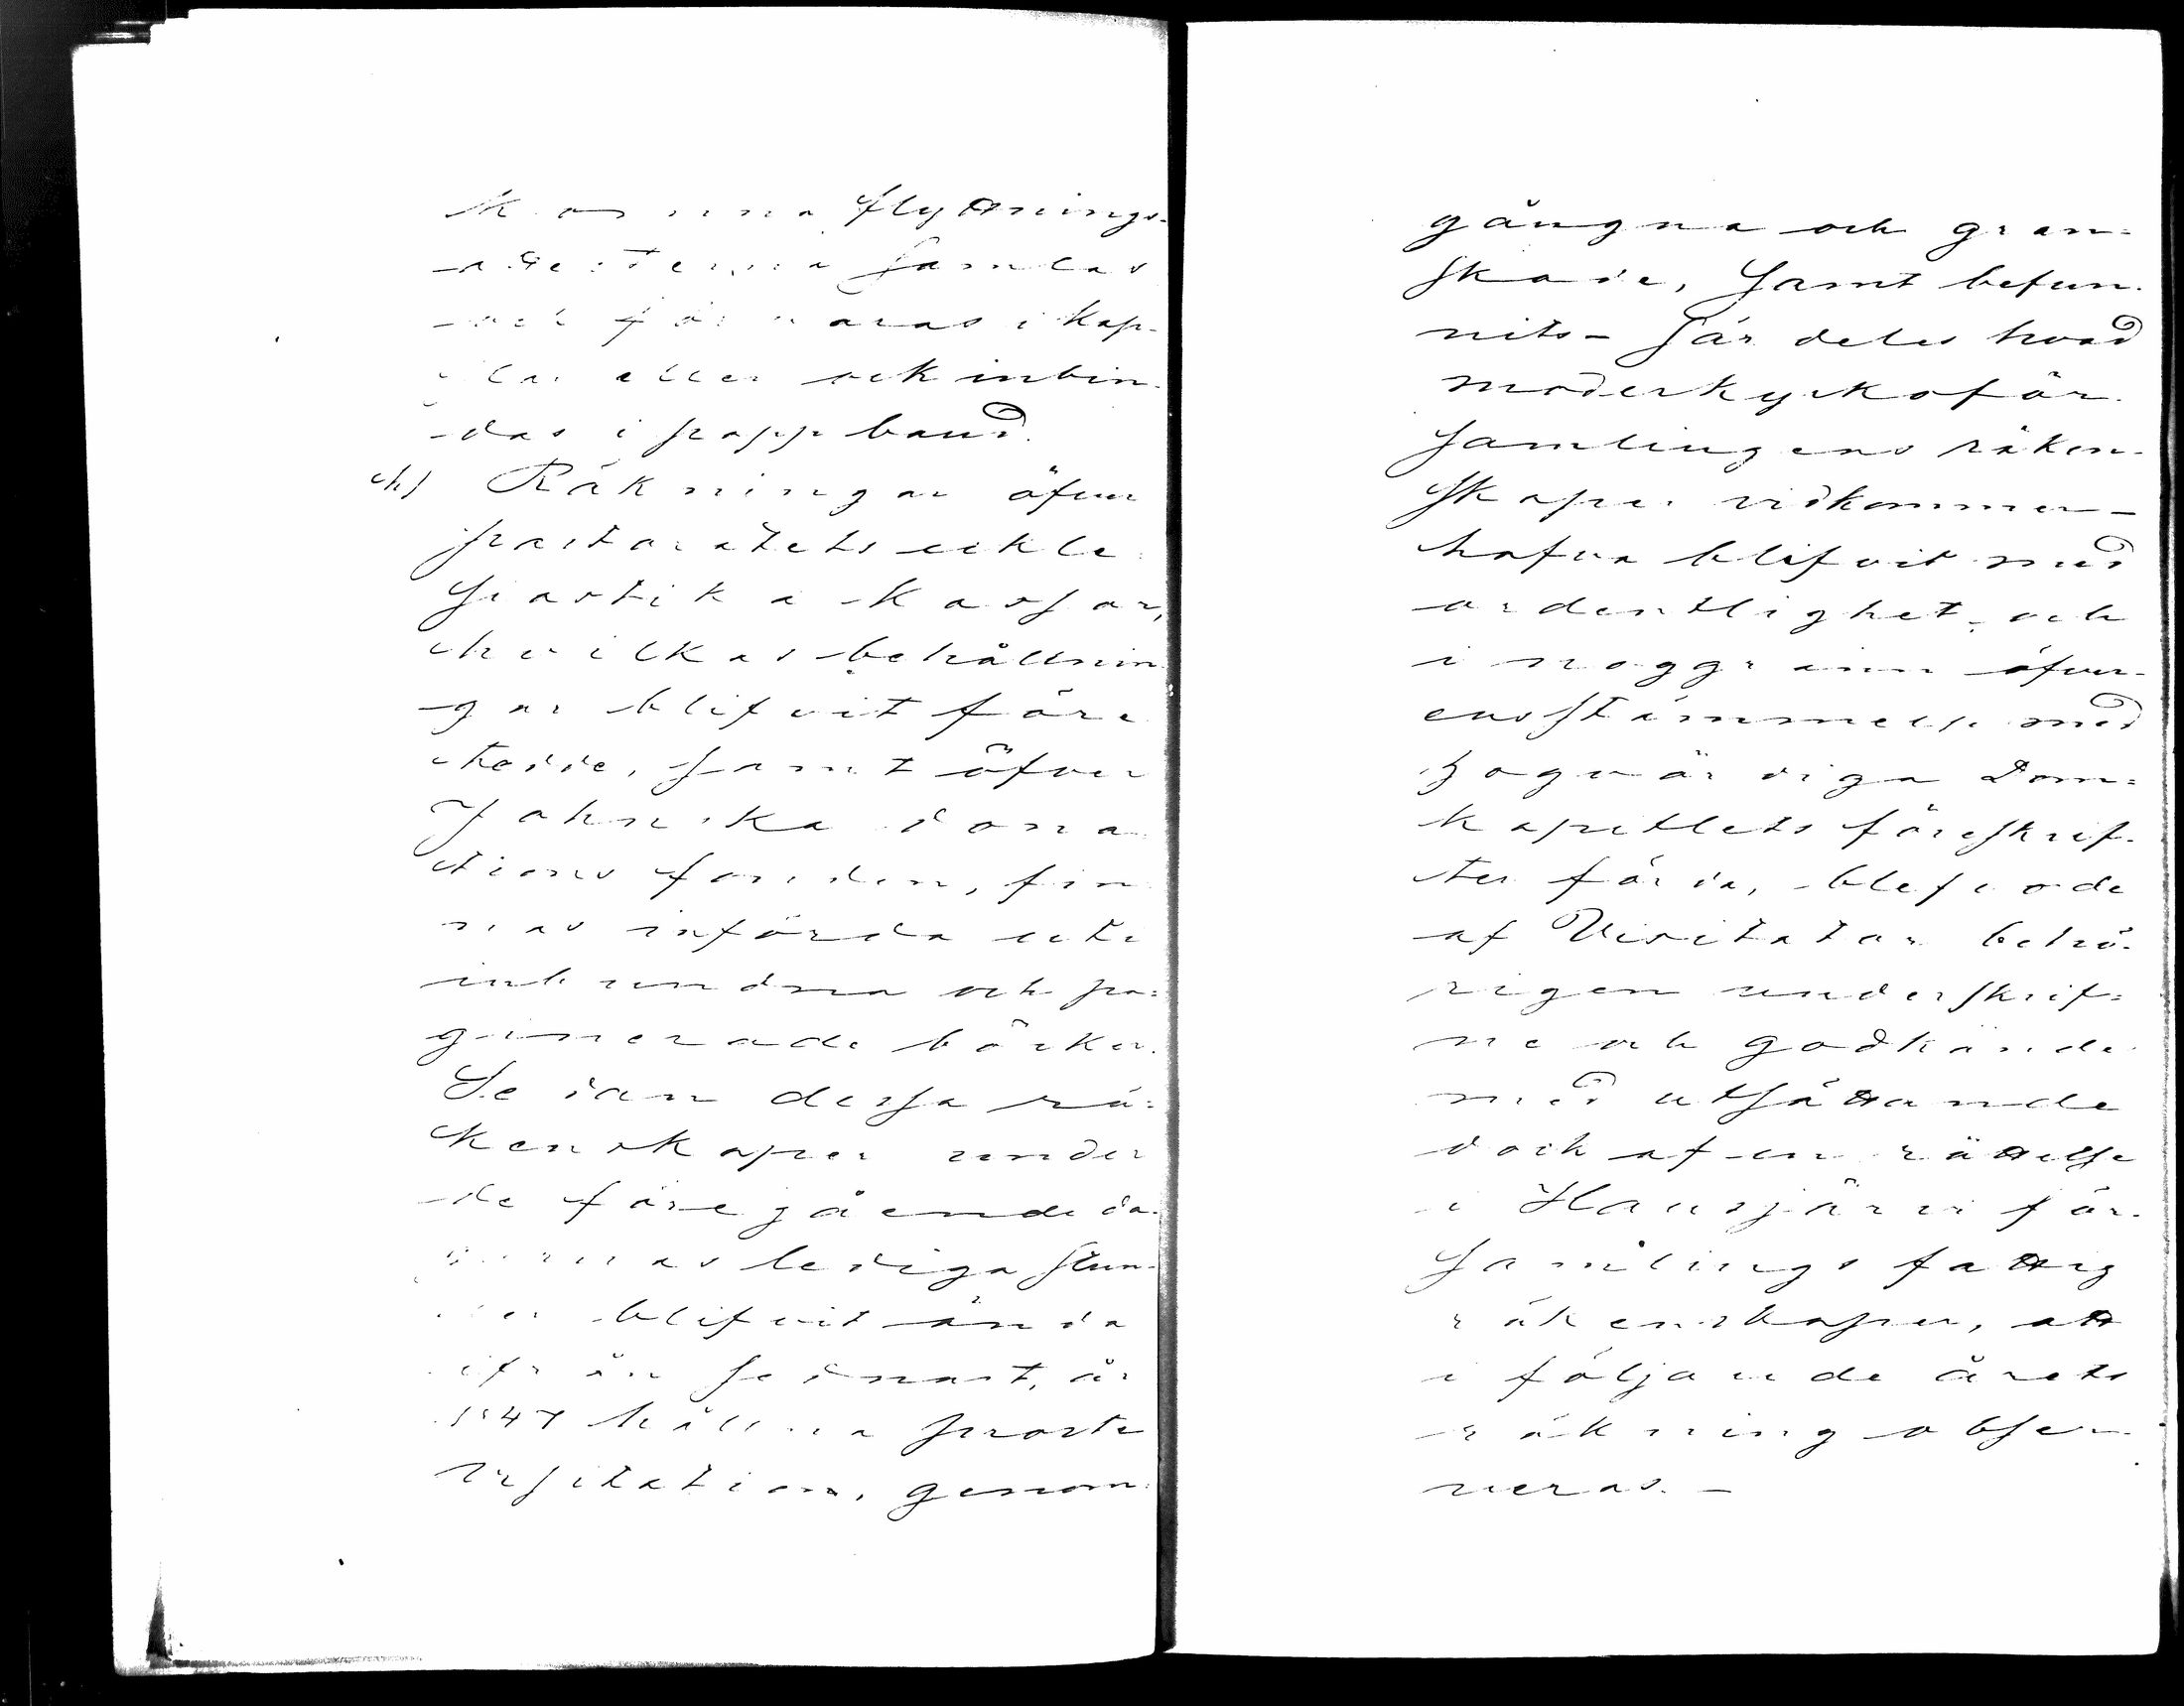 komna flyttnings-
attesterna samlas
och förvaras i kap-
slar eller ock inbin-
das i pappband.
h) Räkningar öfver
pastoratets eckle-
siastika kassor,
hvilkas behållnin-
gar blifvit före-
tedde, samt öfver
Johnska dona-
tions fonden, fin-
nas införda uti
inbundna och pa=
ginerade böcker.
Sedan dessa rä=
kenskaper under
de föregående da-
garnas lediga stun-
der blifvit ända
ifrån sednast, år
1847 hållna proste
visitation, genom-
gångna och gran=
skade, samt befun-
nits – särdeles hvad
moderkyrkoför-
samlingens räken-
skaper vidkommer –
hafva blifvit med
ordentlighet, och
i noggrann öfver-
ensstämmelse med
Högvördiga Dom=
kapitlets föreskrif-
ter förda, blefvo de
af Visitator behö-
rigen underskrif=
ne och godkände
med utsättande
dock af en rättelse
i Hausjärvi för-
samlings fattig
räkenskaper, att
i följande årets
räkning obser-
veras. –